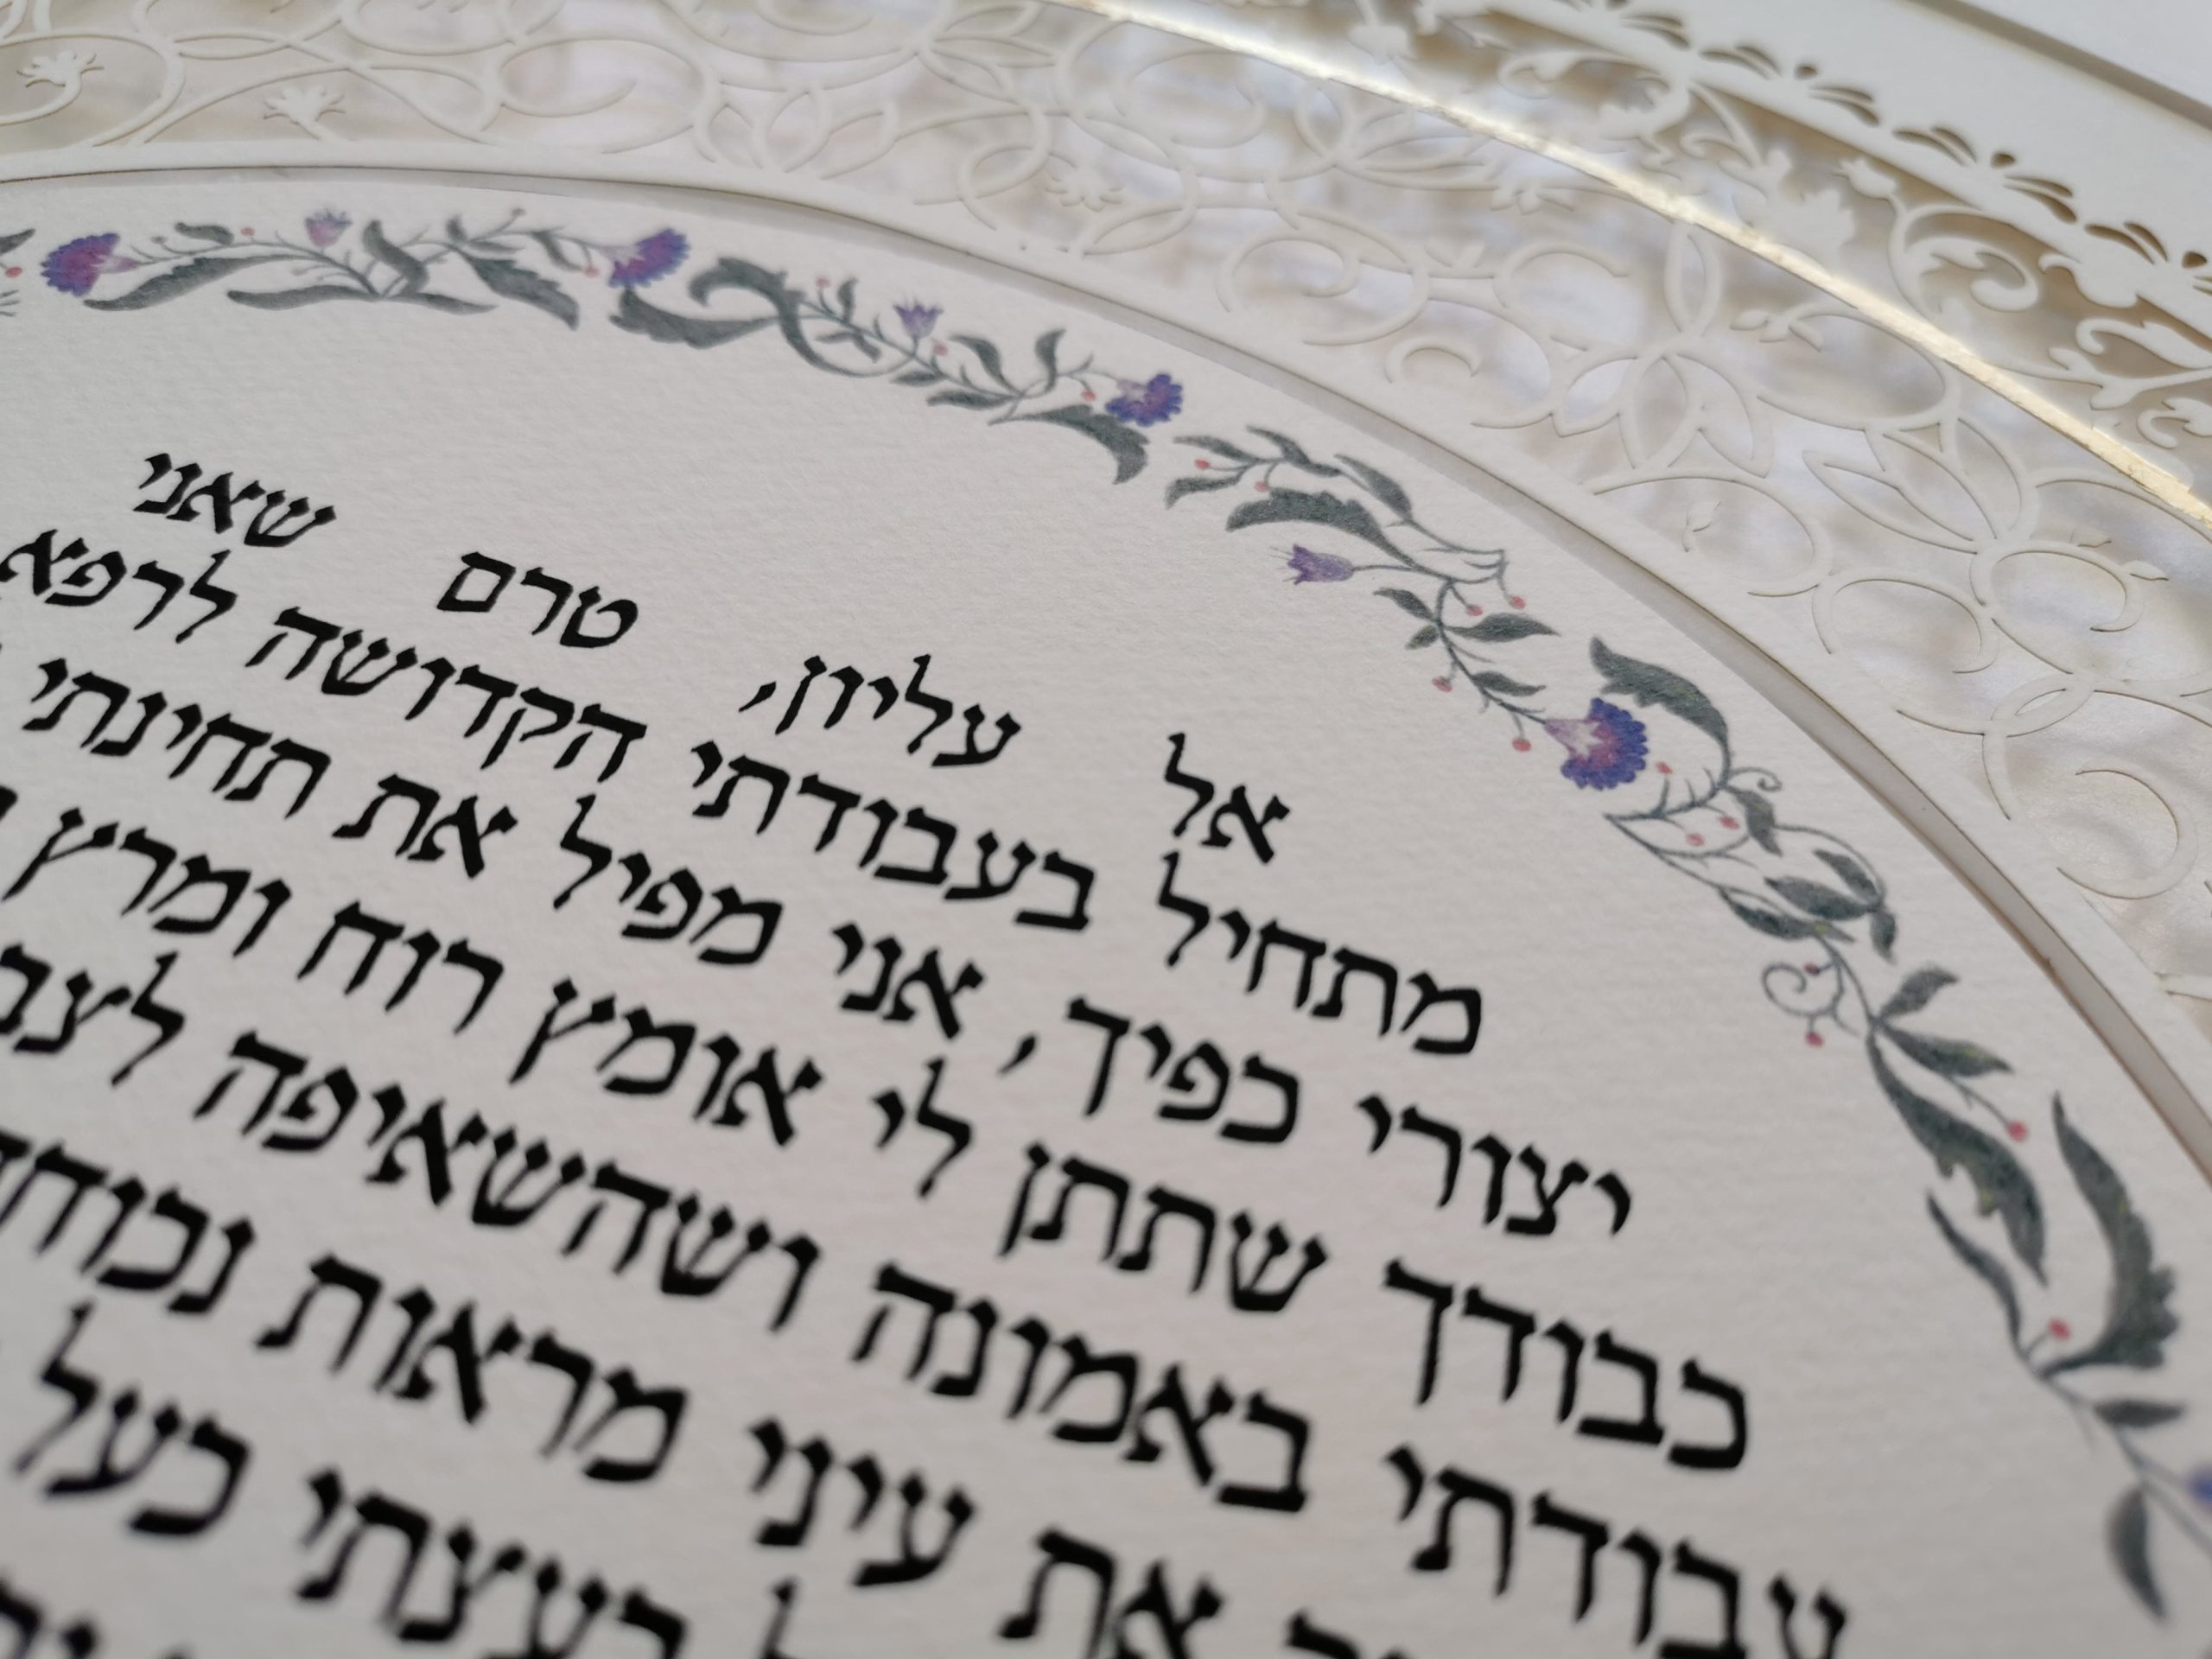 אל עליון, טרם שאני
מתחיל בעבודתי הקדושה לרפא
יצורי כפיך, אני מפיל את תחינתי
כבודך שתתן לי אומץ רוח ומרץ
עבודתי באמונה ושהשאיפה
את עיני מראות
בעצתי כעל